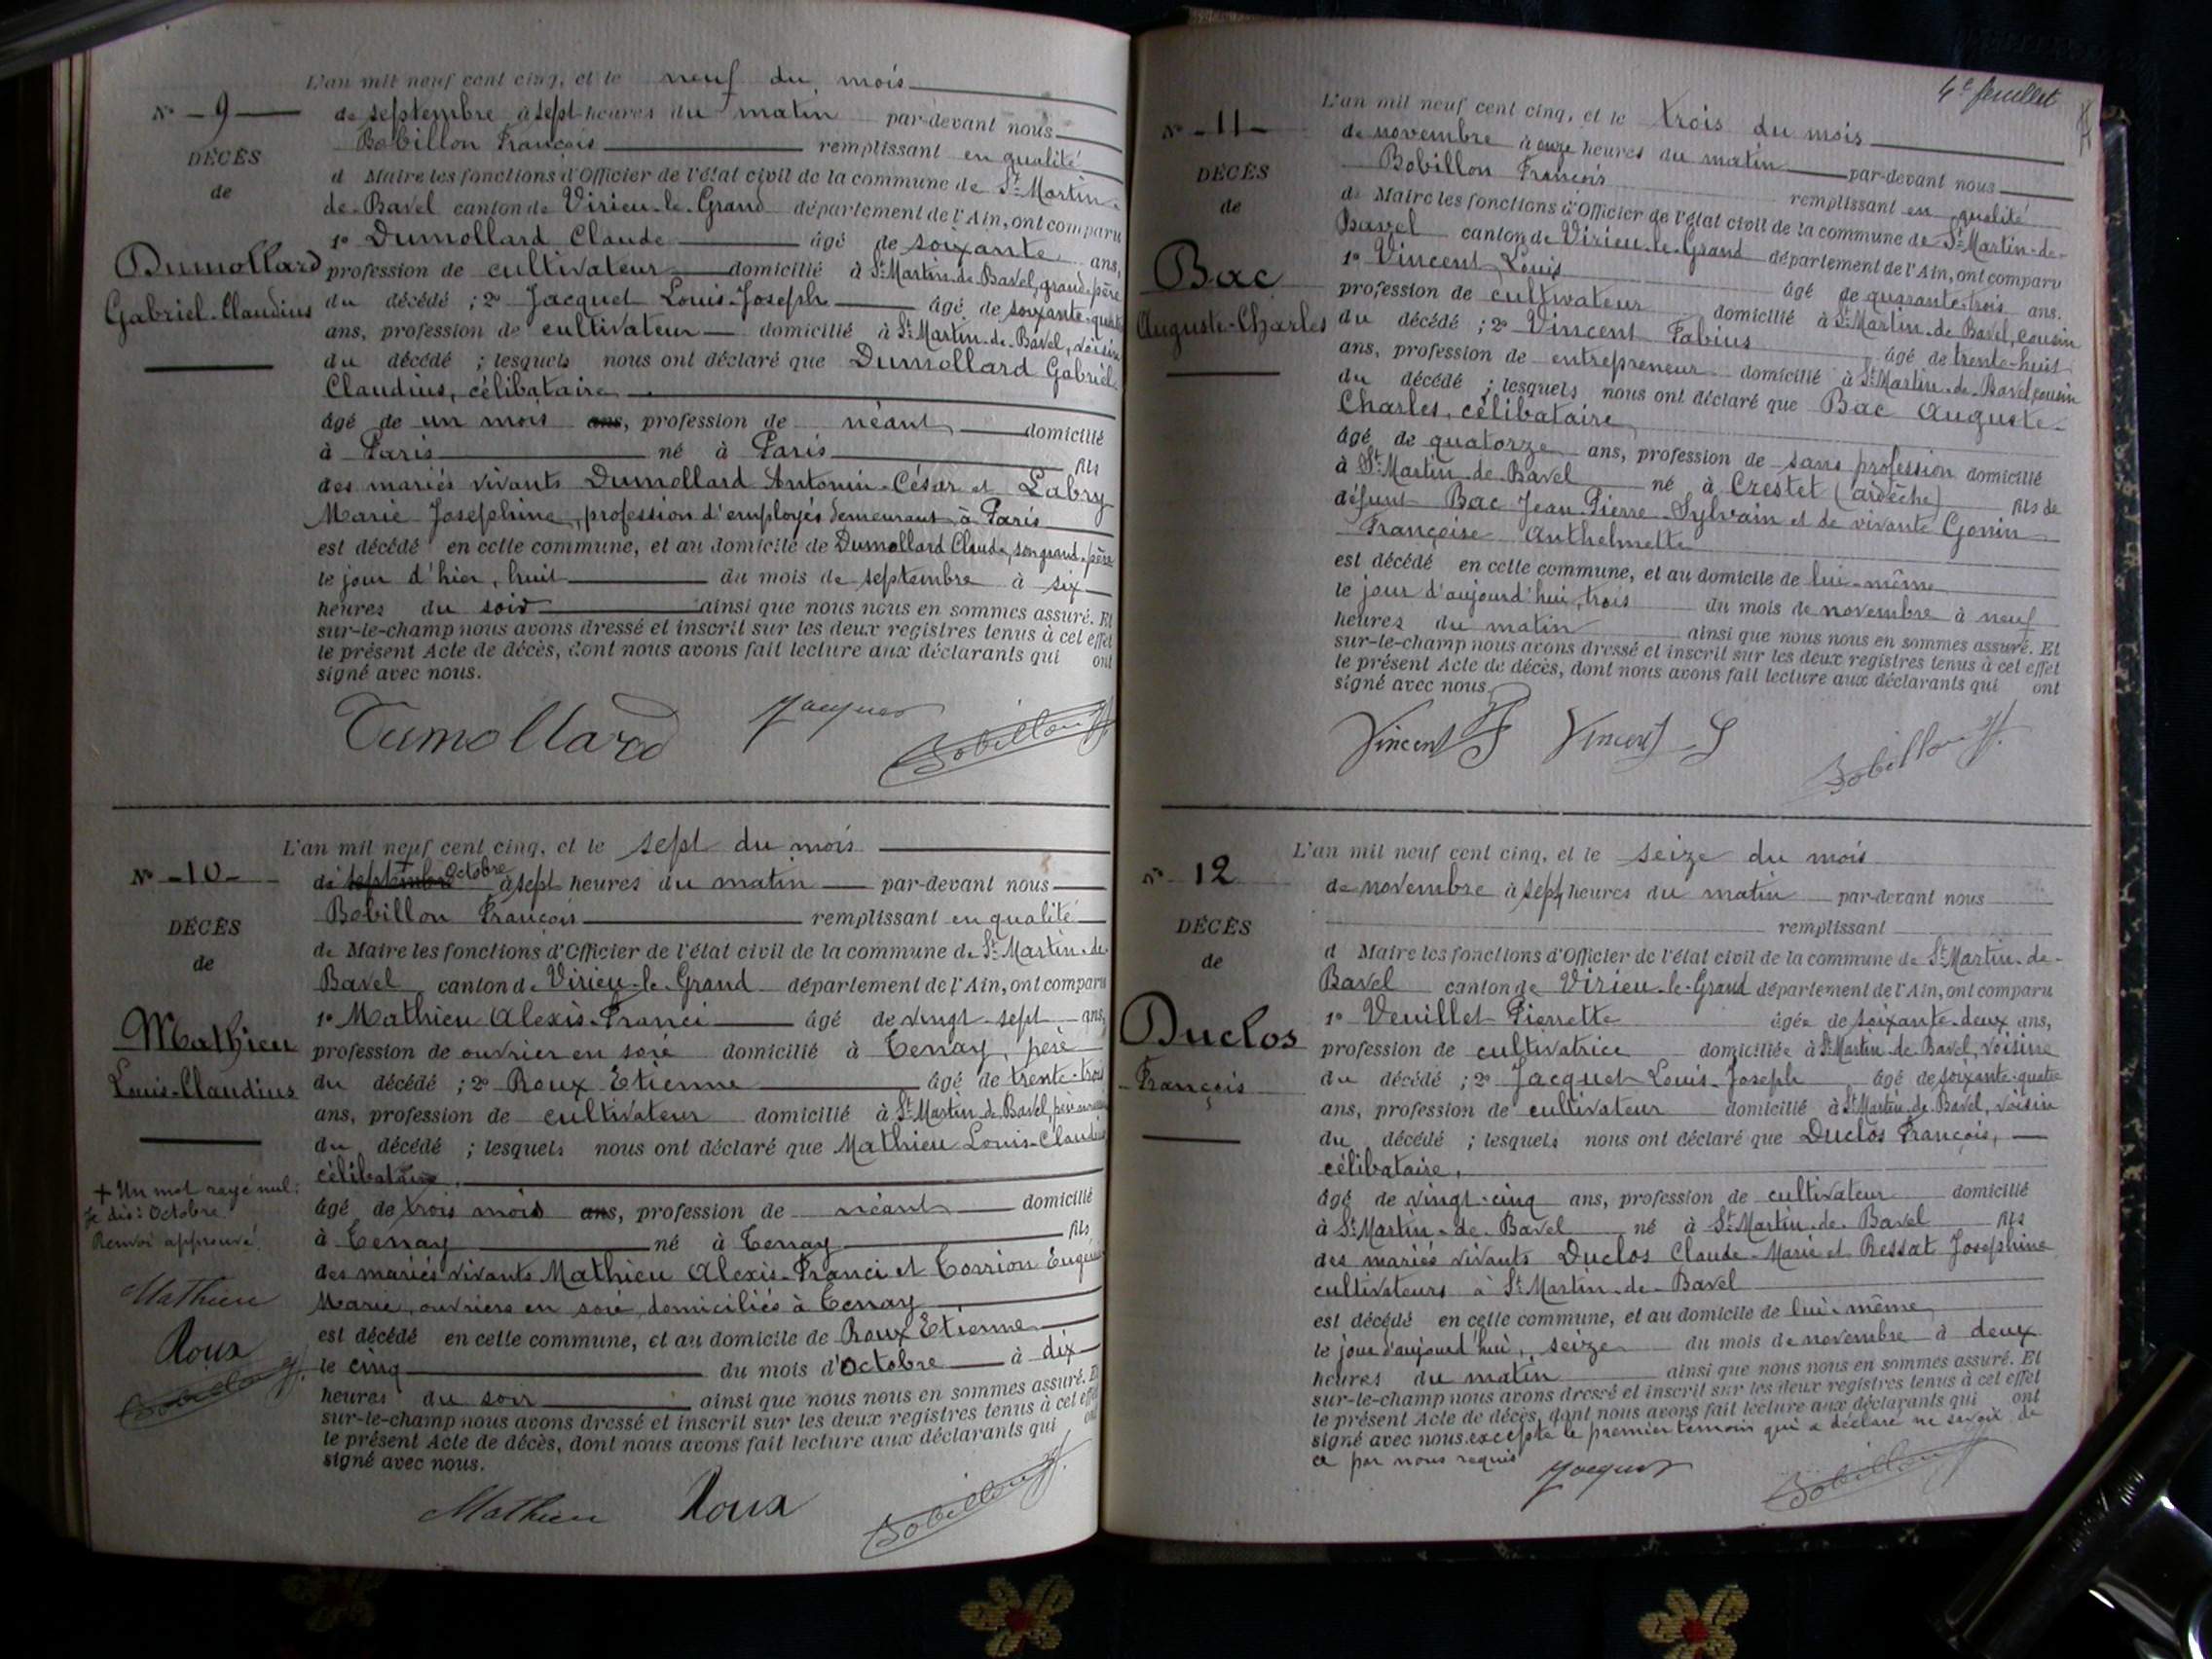 L'an mil neuf cent cinq, et le neuf du mois
N° - 9 -
de septembre à sept heures du matin par-devant nous
Bobillon François remplissant en qualité
DÉCÈS
de
d Maire les fonctions d'Officier de l'état civil de la commune de St-Martin-
de-Bavel canton de Virieu-le-Grand département de l'Ain, ont comparu
1° Dumollard Claude âgé de soixante ans,
Dumollard
Gabriel-Claudius
profession de cultivateur domicilié à St Martin-de-Bavel, grand-père
du décédé ; 2° Jacquet Louis-Joseph âgé de soixante-quatre
ans, profession de cultivateur domicilié à St Martin-de-Bavel, voisin
du décédé ; lesquels nous ont déclaré que Dumollard Gabriel-
Claudius, célibataire
âgé de un mois ans, profession de néant domicilié
à Paris né à Paris fils
des mariés vivants Dumollard Antonin-César et Labry
Marie Joséphine, profession d'employés demeurant à Paris
est décédé en cette commune, et au domicile de Dumollard Claude, son grand-père
le jour d'hier, huit du mois de septembre à six
heures du soir ainsi que nous nous en sommes assuré. Et
sur-le-champ nous avons dressé et inscrit sur les deux registres tenus à cet effet
le présent Acte de décès, dont nous avons fait lecture aux déclarants qui ont
signé avec nous.
Dumollard Jacquet Bobillon F.
L'an mil neuf cent cinq, et le sept du mois
N° - 10 -
de septembre + Octobre à sept heures du matin par-devant nous
Bobillon François remplissant en qualité
DÉCÈS
de
de Maire les fonctions d'Officier de l'état civil de la commune de St-Martin-de-
Bavel canton de Virieu-le-Grand département de l'Ain, ont comparu
1° Mathieu Alexis-Franci âgé de vingt-sept ans,
Mathieu
Louis-Claudius
profession de ouvrier en soie domicilié à Tenay, père
du décédé ; 2° Roux Etienne âgé de trente-trois
ans, profession de cultivateur domicilié à St Martin-de-Bavel,
du décédé ; lesquels nous ont déclaré que Mathieu Louis-Claudius
célibataire,
+ Un mot rayé nul;
je dis: Octobre
Renvoi approuvé.
Mathieu
Roux
Bobillon F.
âgé de trois mois ans, profession de néant domicilié
à Tenay né à Tenay fils
des mariés vivants Mathieu Alexis-Franci et Torrion Eugénie
Marie, ouvriers en soie, domiciliés à Tenay
est décédé en cette commune, et au domicile de Roux Etienne
le cinq du mois d'Octobre à dix
heures du soir ainsi que nous nous en sommes assuré. Et
sur-le-champ nous avons dressé et inscrit sur les deux registres tenus à cet effet
le présent Acte de décès, dont nous avons fait lecture aux déclarants qui ont
signé avec nous.
Mathieu Roux Bobillon F.
4e feuillet
L'an mil neuf cent cinq, et le trois du mois
N° - 11 -
de novembre à onze heures du matin par-devant nous
Bobillon François remplissant en qualité
DÉCÈS
de
de Maire les fonctions d'Officier de l'état civil de la commune de St-Martin-de-
Bavel canton de Virieu-le-Grand département de l'Ain, ont comparu
1° Vincent Louis âgé de quarante-trois ans.
Bac
Auguste-Charles
profession de cultivateur domicilié à St Martin-de-Bavel, cousin
du décédé ; 2° Vincent Fabius âgé de trente-huit
ans, profession de entrepreneur domicilié à St Martin-de-Bavel, cousin
du décédé ; lesquels nous ont déclaré que Bac Auguste-
Charles, célibataire
âgé de quatorze ans, profession de sans profession domicilié
à St Martin-de-Bavel né à Crestet (ardèche) fils de
défunt Bac Jean-Pierre-Sylvain et de vivante Gonin
Françoise Anthelmette
est décédé en cette commune, et au domicile de lui-même
le jour d'aujourd'hui, trois du mois de novembre à neuf
heures du matin ainsi que nous nous en sommes assuré. Et
sur-le-champ nous avons dressé et inscrit sur les deux registres tenus à cet effet
le présent Acte de décès, dont nous avons fait lecture aux déclarants qui ont
signé avec nous.
Vincent F Vincent L Bobillon F.
L'an mil neuf cent cinq, et le seize du mois
N° - 12
de novembre à sept heures du matin par-devant nous
remplissant
DÉCÈS
de
d Maire les fonctions d'Officier de l'état civil de la commune de St-Martin-de-
Bavel canton de Virieu-le-Grand département de l'Ain, ont comparu
1° Veuillet Pierrette âgée de soixante-deux ans,
Duclos
François
profession de cultivatrice domiciliée à St Martin-de-Bavel, voisine
du décédé ; 2° Jacquet Louis-Joseph âgé de soixante-quatre
ans, profession de cultivateur domicilié à St Martin-de-Bavel, voisin
du décédé ; lesquels nous ont déclaré que Duclos François,
célibataire,
âgé de vingt-cinq ans, profession de cultivateur domicilié
à St Martin-de-Bavel né à St Martin-de-Bavel fils
des mariés vivants Duclos Claude-Marie et Ressat Joséphine
cultivateurs à St Martin-de-Bavel
est décédé en cette commune, et au domicile de lui-même
le jour d'aujourd'hui, seize du mois de novembre à deux
heures du matin ainsi que nous nous en sommes assuré. Et
sur-le-champ nous avons dressé et inscrit sur les deux registres tenus à cet effet
le présent Acte de décès, dont nous avons fait lecture aux déclarants qui ont
signé avec nous. excepté le premier témoin qui a déclaré ne savoir de
ce par nous requis
Jacquet Bobillon F.